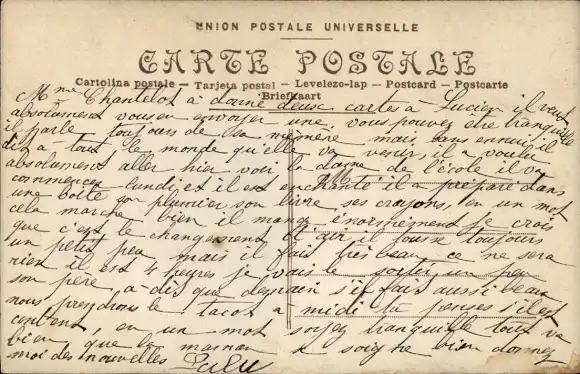 UNION POSTALE UNIVERSELLE
CARTE POSTALE
Cartolina postale — Tarjeta postal — Levelezo-lap — Postcard — Postcarte
Briefkaart
Mme Chantelot a donné deux cartes à Lucien il veut
absolument vous en envoyer une. vous pouvez être tranquille
il parle toujours de sa mémère mais sans ennui il
dit à tout le monde qu'elle va venir, il a voulu
absolument aller hier voir la dame de l'école il va
commencer lundi et il est enchanté il a préparé dans
une boîte son plumier son livre ses crayons, en un mot
cela marche bien il mange énormément je crois
que c'est le changement d'air il tousse toujours
un petit peu mais il fait très beau ce ne sera
rien il est 4 heures je vais le sortir un peu
son père a dit que demain s'il fait aussi beau
nous prendrons le tacot à midi tu penses s'il est
content, en un mot soyez tranquille tout va
bien, que la maman se soigne bien donnez
moi des nouvelles Lulu